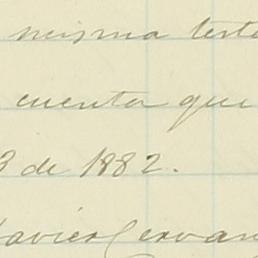 misma testa
cuenta que
3 de 1882.
Javier Cervan